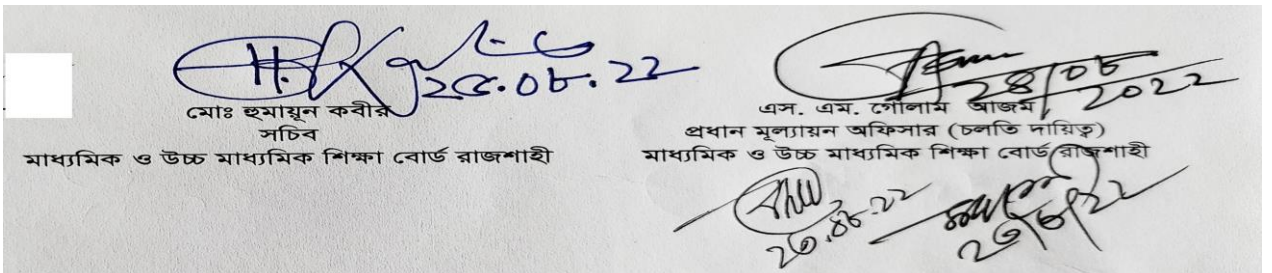 ২৫.০৮.২২
২৪/০৮
২০২২
মোঃ হুমায়ূন কবীর
সচিব
মাধ্যমিক ও উচ্চ মাধ্যমিক শিক্ষা বোর্ড রাজশাহী
এস. এম. গোলাম আজম
প্রধান মূল্যায়ন অফিসার (চলতি দায়িত্ব)
মাধ্যমিক ও উচ্চ মাধ্যমিক শিক্ষা বোর্ড রাজশাহী
২৩.০৮.২২